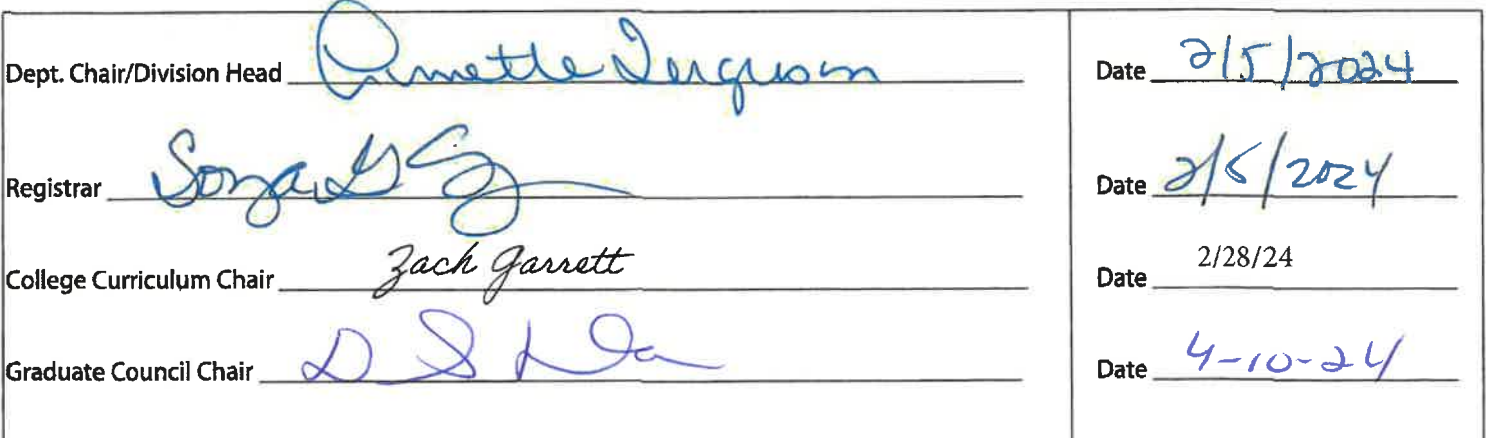 Dept. Chair/Division Head Annette Ferguson Date 2/5/2024
Registrar Sonya G Date 2/5/2024
College Curriculum Chair Zach Garrett Date 2/28/24
Graduate Council Chair D S Date 4-10-24